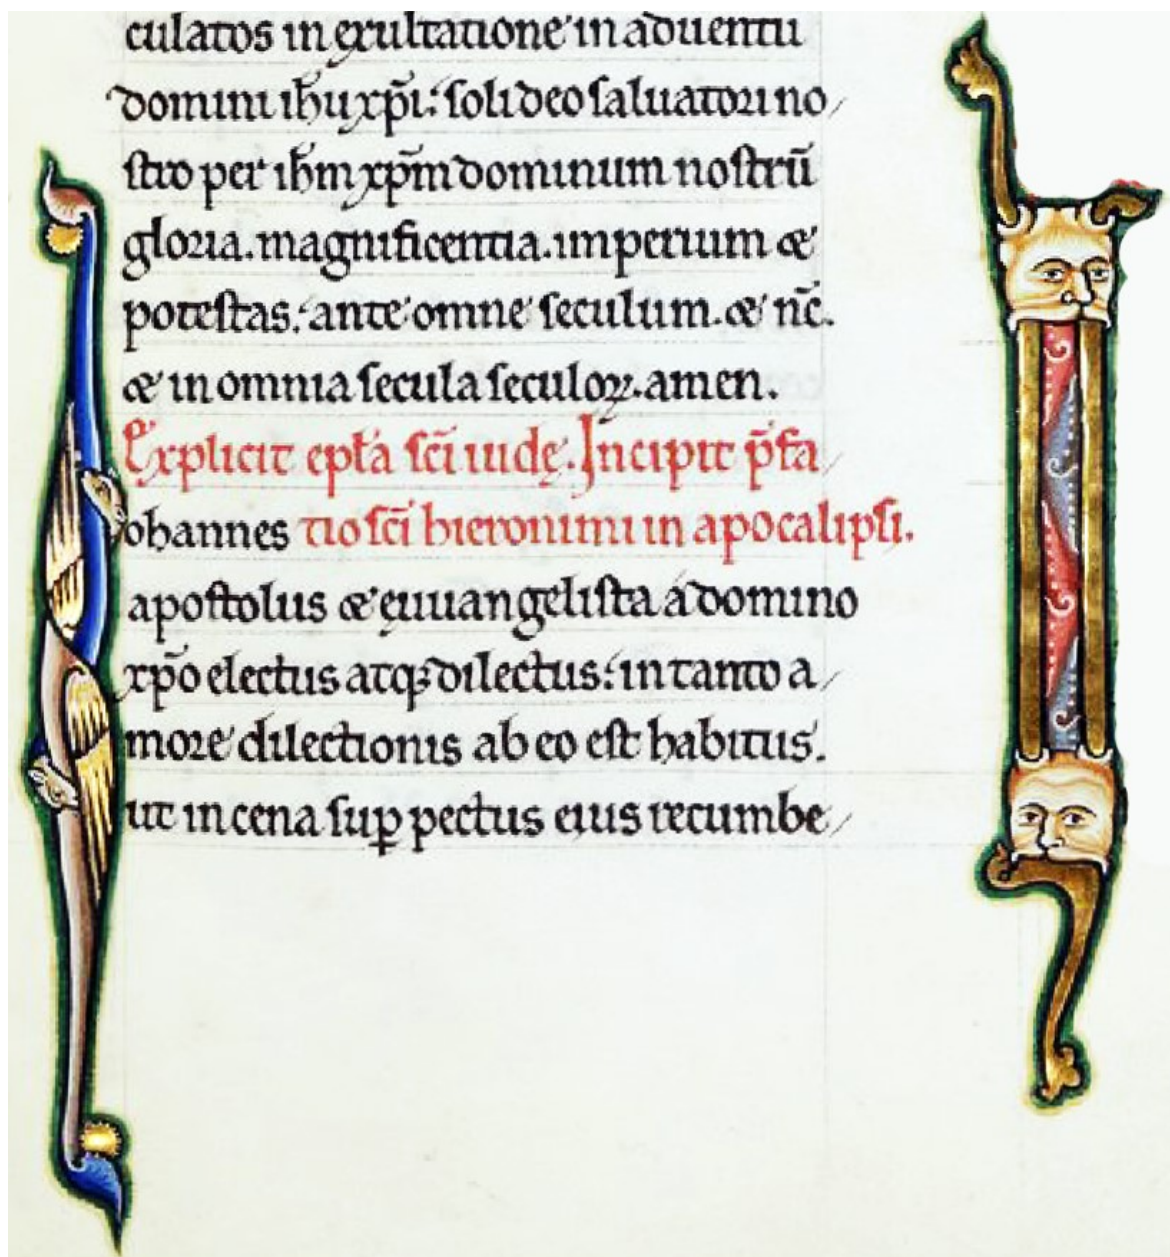 culatos in exultatione in aduentu
domini ih̄u xp̄i: soli deo saluatori no/
stro per ih̄m xp̄m dominum nostrū
gloria. magnificentia. imperium &
potestas: ante omne seculum. & nc̄.
& in omnia secula seculoꝝ. amen.
Explicit epl̄a sc̄i iudę. Incipit p̄fa/
ohannes tio sc̄i hieronimi in apocalipsi.
apostolus & euuangelista a domino
xp̄o electus atq; dilectus: in tanto a/
more dilectionis ab eo est habitus.
ut in cena suꝑ pectus eius recumbe/